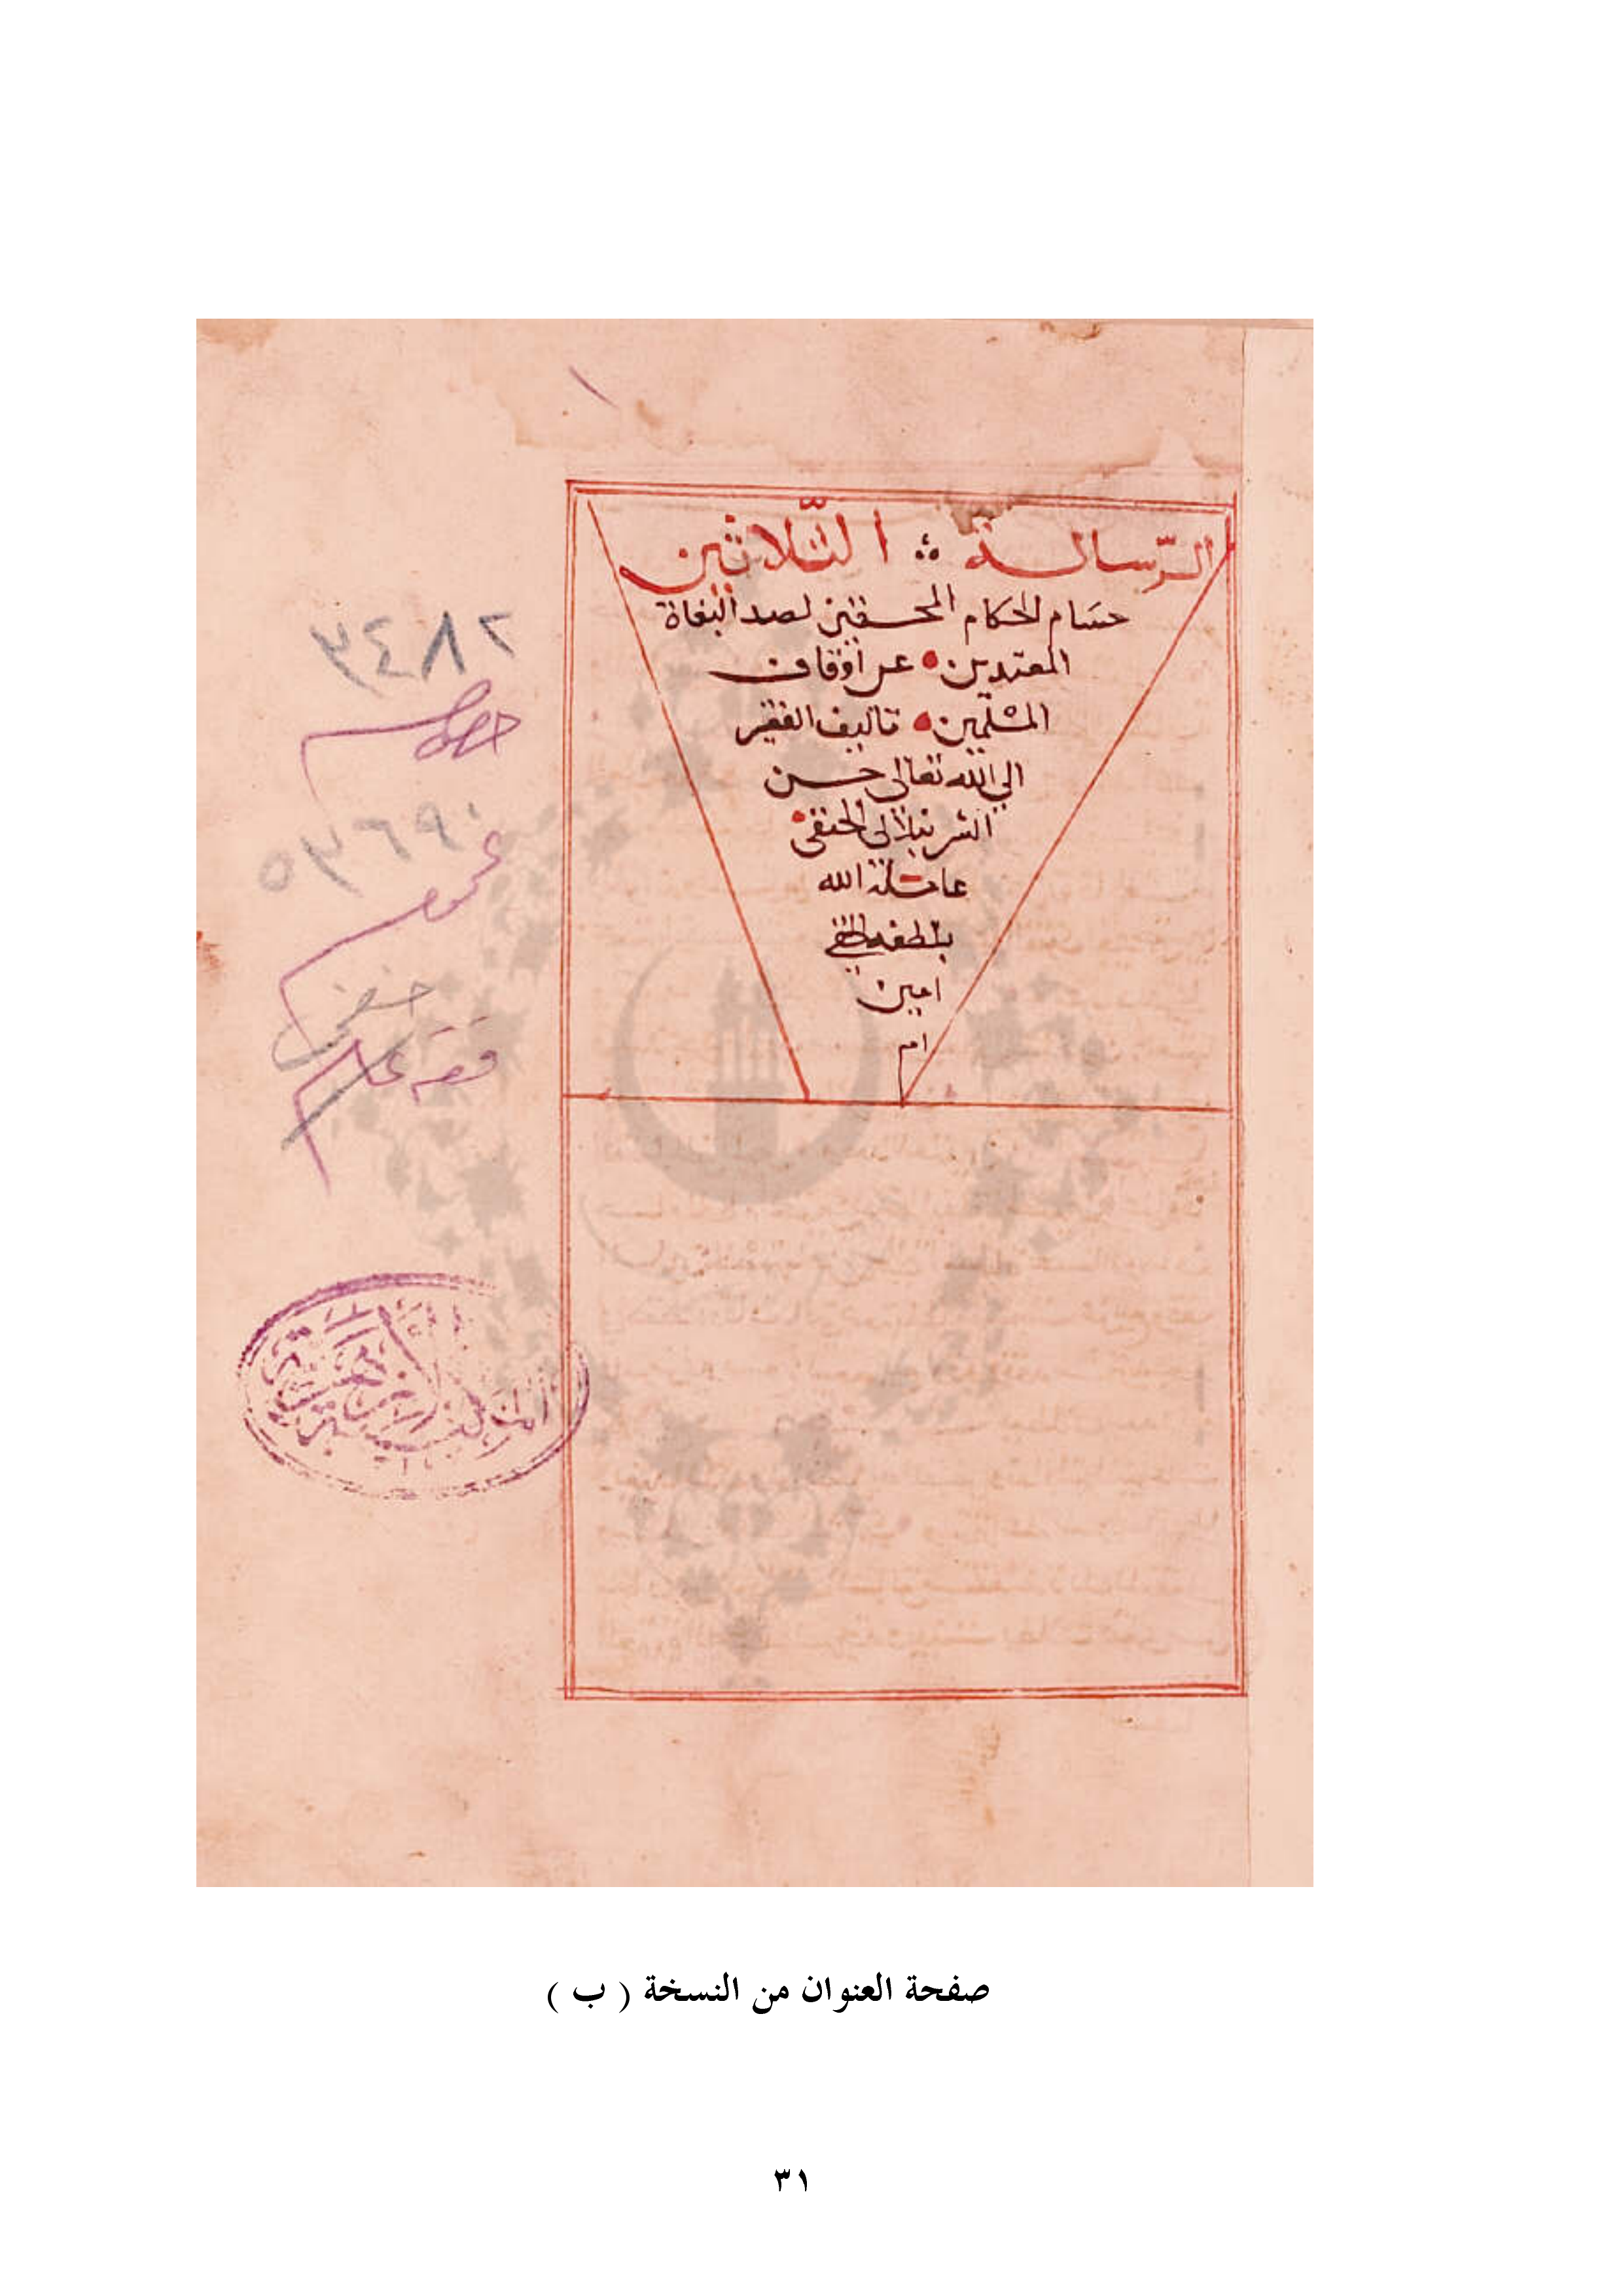 الرّسالة ؞ الثّلاثين
حسام الحكام المحققين لصد البغاة
المعتدين عن اوقاف
المسلمين تاليف الفقير
الي الله تعالى حسن
الشرنبلالى الحنفى
عامله الله
بلطفه الخفي
امين
امم
١
٢٨٤٣
خصوص
٥٣٦٩٠
عموم
حنفى
فقه عام
صفحة العنوان من النسخة ( ب )
٣١